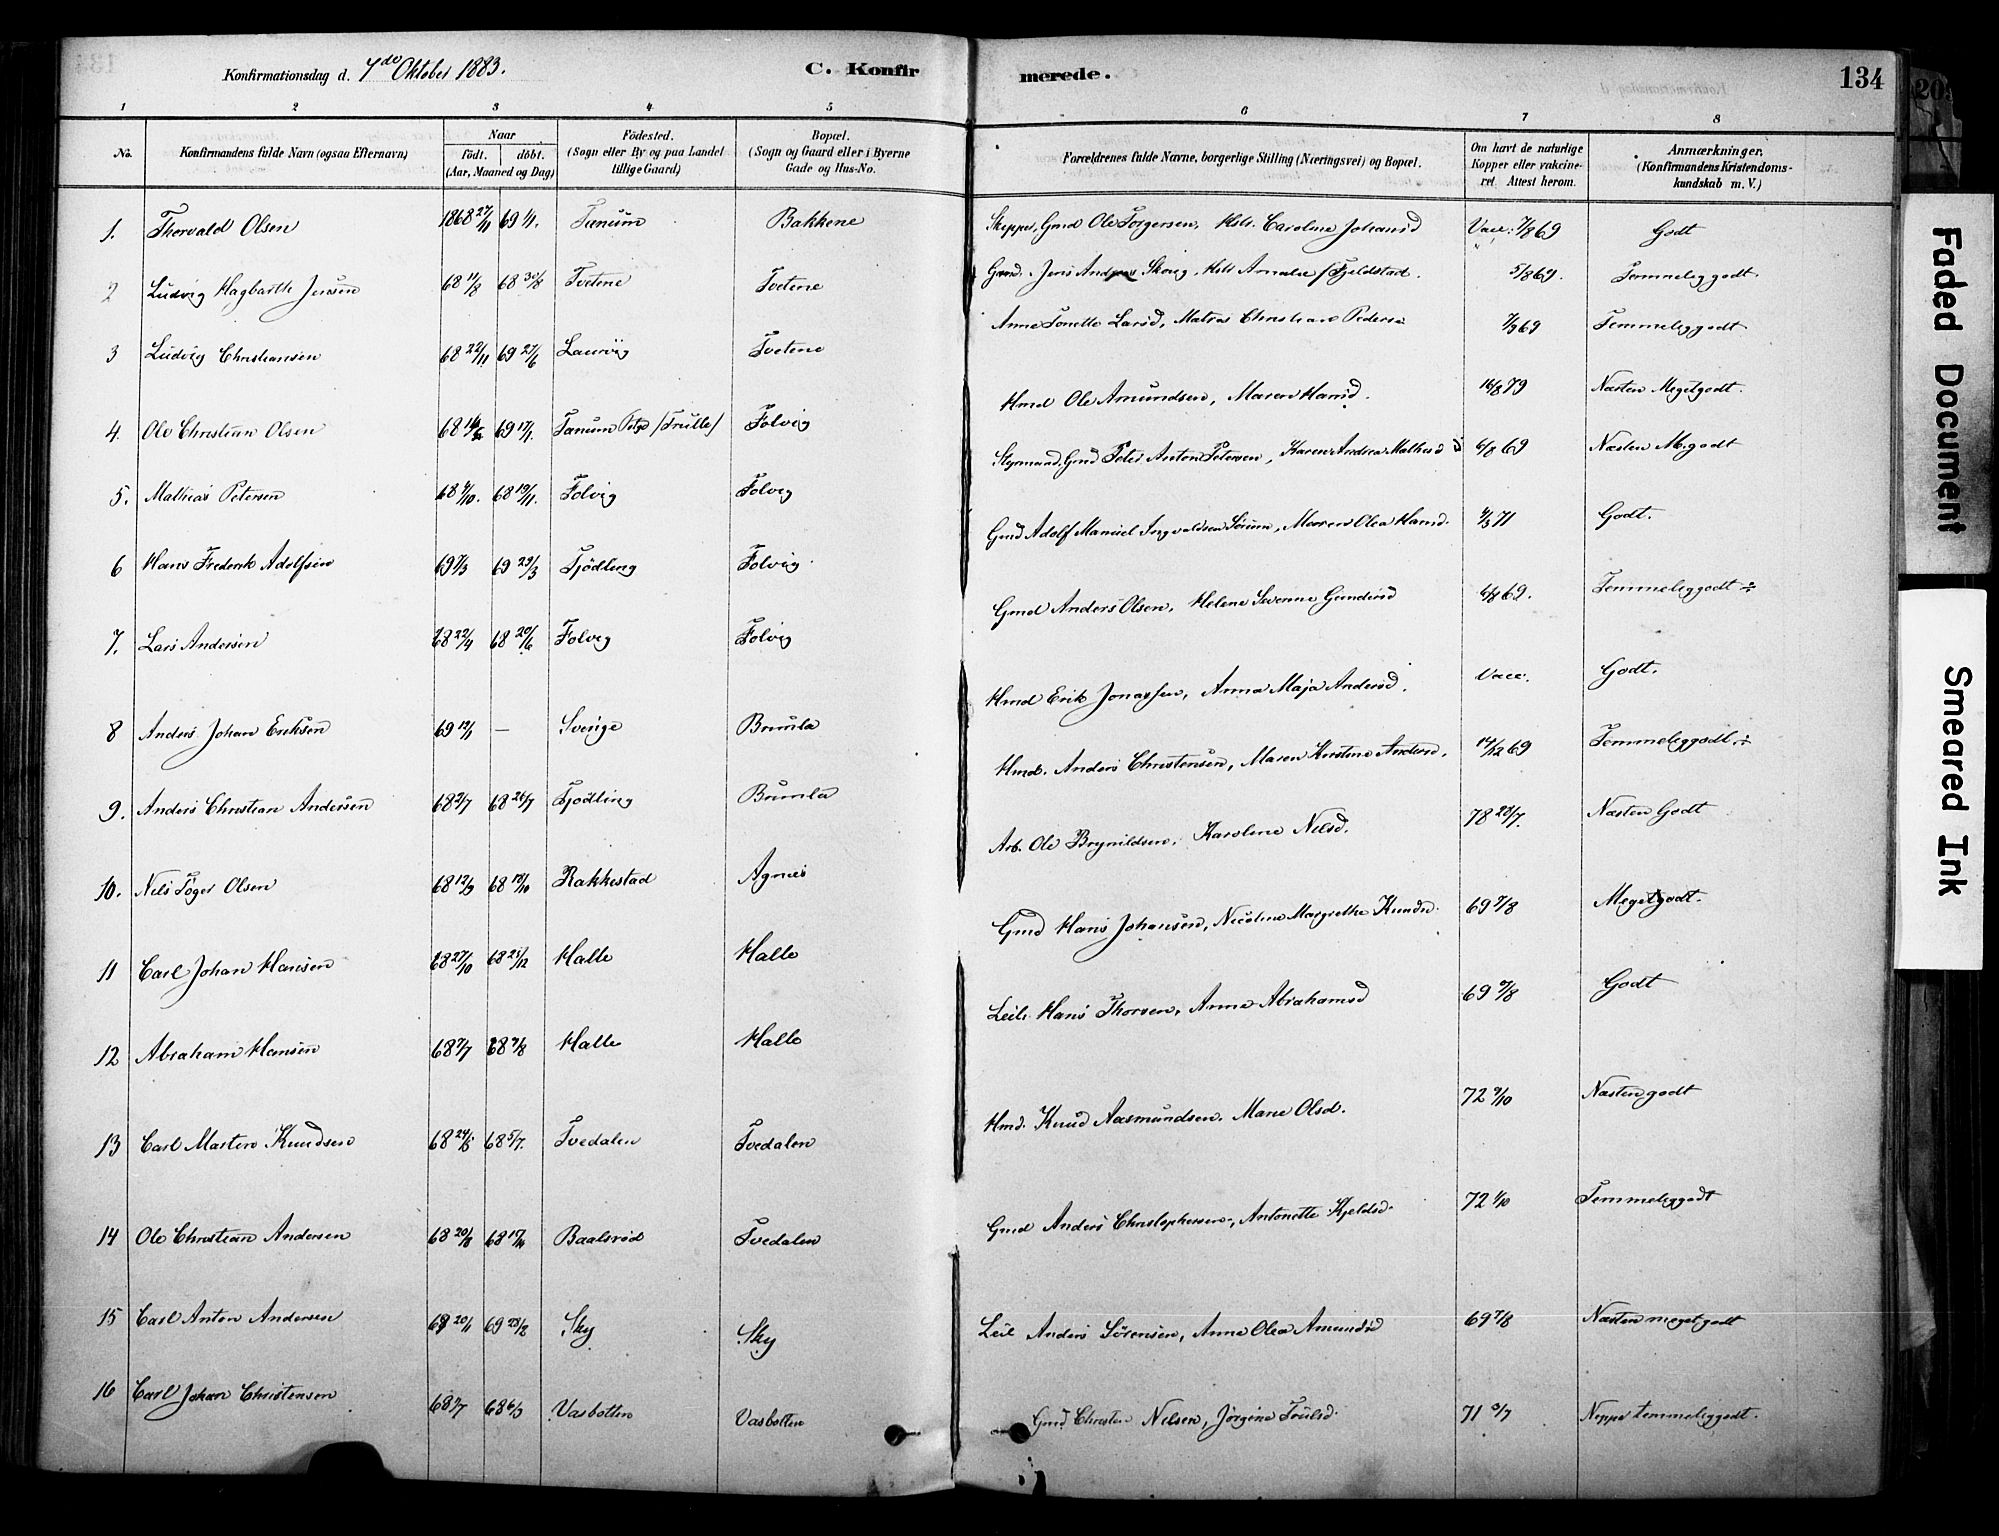 Konfirmationsdag d. 7de Oktober 1883. C. Konfirmerede. 134
1 2 3 4 5 6 7 8
No. Konfirmandens fulde Navn (ogsaa Efternavn) Naar födt. döbt. (Aar, Maaned og Dag) Födested. (Sogn eller By og paa Landet tillige Gaard) Bopæl. (Sogn og Gaard eller i Byerne Gade og Hus-No. Forældrenes fulde Navne, borgerlige Stilling (Næringsvei) og Bopæl. Om havt de naturlige Kopper eller vakcineret. Attest herom. Anmærkninger. (Konfirmandens Kristendomskundskab m. V.)
1. Thorvald Olsen 1868 27/11 69 1/1. Tanum Bakkene Skipper, Gmd Ole Torgersen, Hstr. Caroline Johansd Vacc. 7/8 69 Godt
2 Ludvig Hagbarth Jensen 68 11/8 68 30/8 Tvetene Tvetene Gmd. Jens Andreas Skovg, Hstr Amalie Fjeldstad. 5/8 69. Temmeliggodt.
3 Ludvig Christiansen 68 22/11 69 27/6 Laurvig Tvetene Anne Tonette Larsd, Matros Christian Peders 7/9 69 Temmeliggodt.
4. Ole Christian Olsen 69 17/1. Tanum (Trulle) Folvig Hmd Ole Amundsen, Maren Hansd. 16/8 79 Næsten Megetgodt.
5. Mathias Petersen 68 4/10. 68 19/11. Folvig Folvig Styrmand, Gmd Peter Anton Petersen, Karen Andrea Mathisd 6/8 69 Næsten M.godt
6 Hans Frederik Adolfsen 69 7/3 69 29/3 Tjödling Folvig Gmd Adolf Manuel Ingvaldsen Sörum, Maren Olea Hansd. 4/3 71 Godt.
7. Lars Andersen 68 22/4 68 20/6 Folvig Folvig Gmd Anders Olsen, Helene Severine Gundersd 6/8 69. Temmeliggodt ÷
8 Anders Johan Eriksen 69 12/1 — Sverige Brunla Hmd Erik Jonassen, Anna Maja Andersd. Vacc. Godt.
9. Anders Christian Andersen 68 2/7 68 26/7 Tjödling Brunla Hmd. Anders Christensen, Maren Kirstine Andersd. 14/12 69 Temmeliggodt ÷
10. Nels Töger Olsen 68 12/9 68 18/10 Rakkestad Agnes Arb. Ole Brynildsen, Karoline Nelsd. 78 28/7. Næsten Godt
11 Carl Johan Hansen 68 27/10 68 25/12 Halle Halle Gmd Hans Johansen, Nicoline Margrethe Knudsd. 69 7/8 Megetgodt.
12 Abraham Hansen 68 7/7 68 9/8 Halle Halle Leil. Hans Thorsen, Anne Abrahamsd 69 7/8 Godt
13 Carl Martin Knudsen 68 24/5 68 5/7. Tvedalen Tvedalen Hmd. Knud Aasmundsen. Marie Olsd. 72 9/10 Næsten godt
14 Ole Christian Andersen 68 20/8 Baalsröd Tvedalen Gmd Anders Christophersen, Antonette Kjeldsd. 72 1/10 Temmeliggodt
15 Carl Anton Andersen 20/11 69 28/2 Sky Sky Leil Anders Sörensen, Anne Olea Amundsd 69 7/8 Næsten megetgodt
16 Carl Johan Christensen 68 7/7 68 6/9 Vasbotten Vasbotten Gmd Christen Nelsen, Jörgine Trulsd. 71 3/7 Neppe temmeliggodt.
Faded Document
Smeared Ink